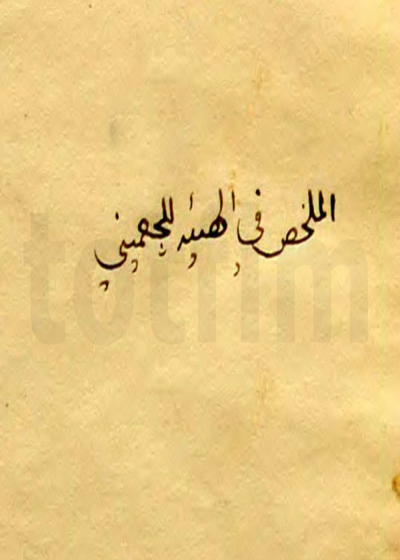 الملخص في الهيئه للجغميني
totfim